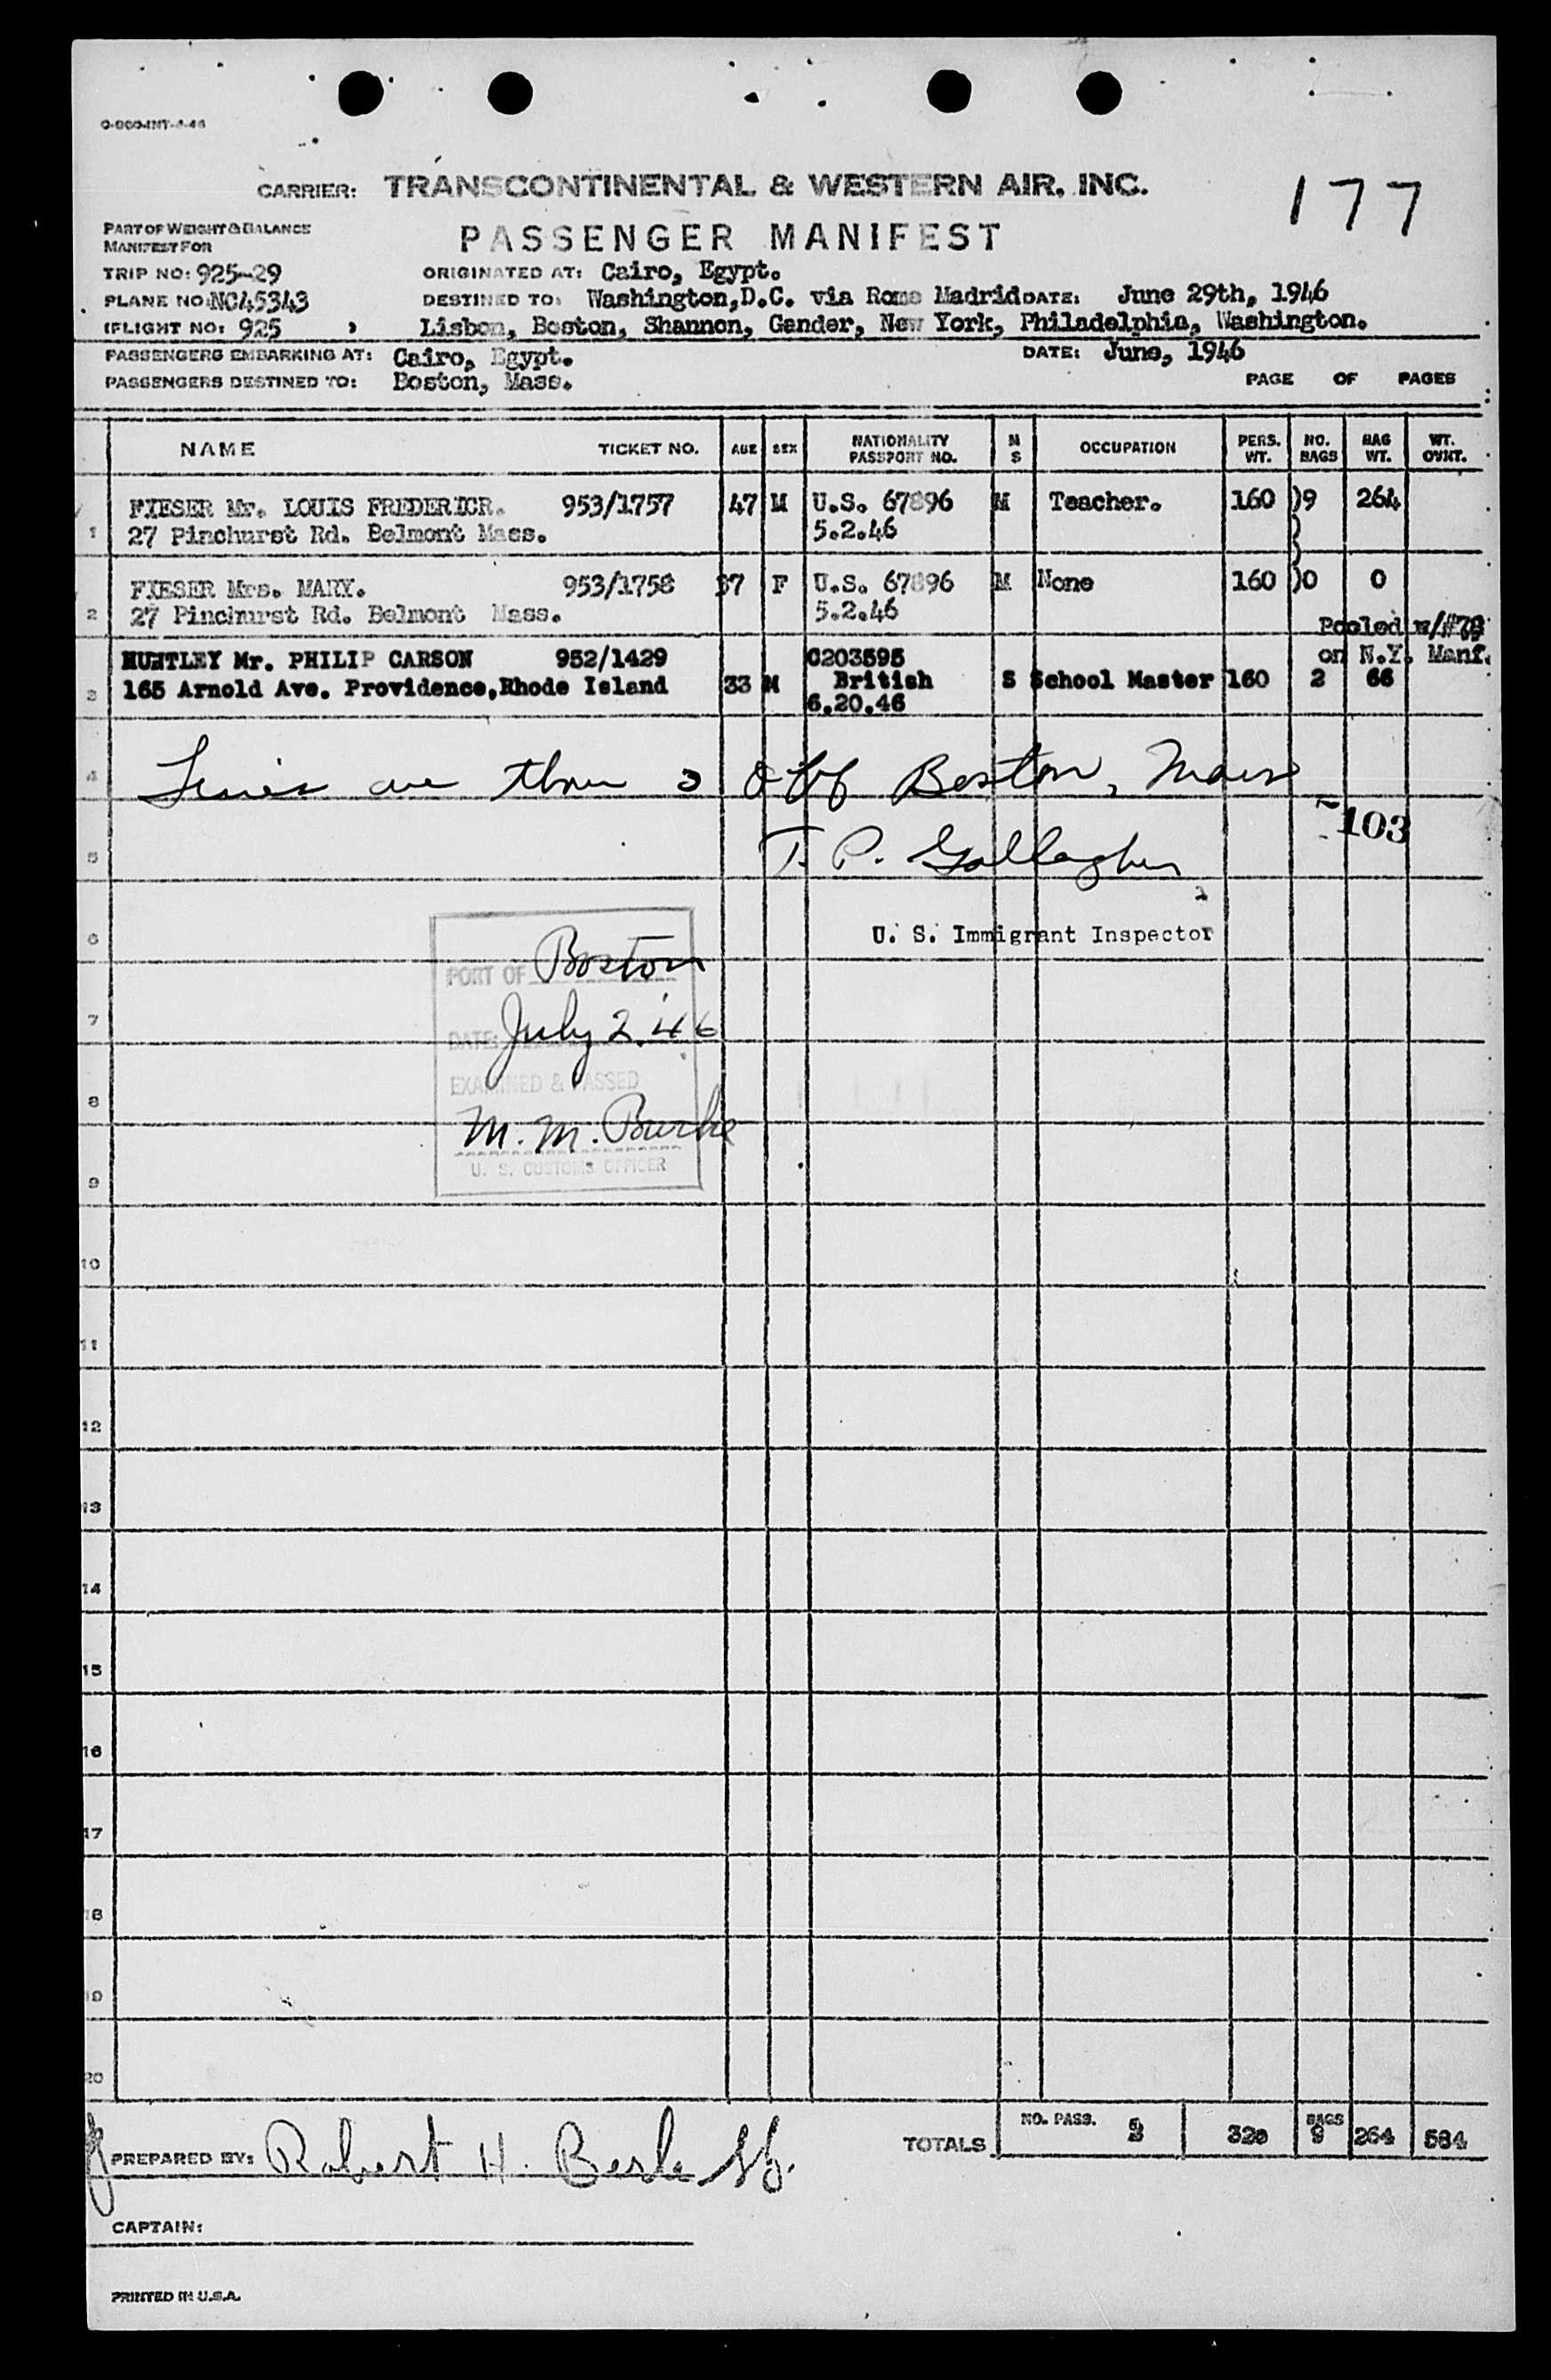 177
CARRIER: TRANSCONTINENTAL & WESTERN AIR, INC.
PASSENGER MANIFEST
PART OF WEIGHT & BALANCE
MANIFEST FOR
TRIP NO: 925-29 ORIGINATED AT: Cairo, Egypt.
PLANE NO: NC45343 DESTINED TO: Washington, D.C. via Rome Madrid DATE: June 29th, 1946
(FLIGHT NO: 925 , Lisbon, Boston, Shannon, Gander, New York, Philadelphia, Washington.
PASSENGERS EMBARKING AT: Cairo, Egypt. DATE: June, 1946
PASSENGERS DESTINED TO: Boston, Mass. PAGE OF PAGES
NAME TICKET NO. AGE SEX NATIONALITY PASSPORT NO. M S OCCUPATION PERS. WT. NO. BAGS BAG WT. WT. OVHT.
1 FIESER Mr. LOUIS FREDERICR. 953/1757 47 M U.S. 67896 M Teacher. 160 )9 264
27 Pinchurst Rd. Belmont Mass. 5.2.46
2 FIESER Mrs. MARY. 953/1758 37 F U.S. 67896 M None 160 )0 0
27 Pinchurst Rd. Belmont Mass. 5.2.46
Pooled w/#78
on N.Y. Manf.
HUNTLEY Mr. PHILIP CARSON 952/1429 C203595
3 165 Arnold Ave. Providence, Rhode Island 33 M British S School Master 160 2 66
6.20.46
4 are three 3 off Boston, Mass
103
5 T. P. Gallagher
6 U. S. Immigrant Inspector
PORT OF Boston
7 DATE: July 2. '46
8 EXAMINED & PASSED
M. M. Burke
9 U. S. CUSTOMS OFFICER
10
11
12
13
14
15
16
17
18
19
20
TOTALS NO. PASS. 320 BAGS 9 264 584
PREPARED BY: Robert H.
CAPTAIN:
PRINTED IN U.S.A.